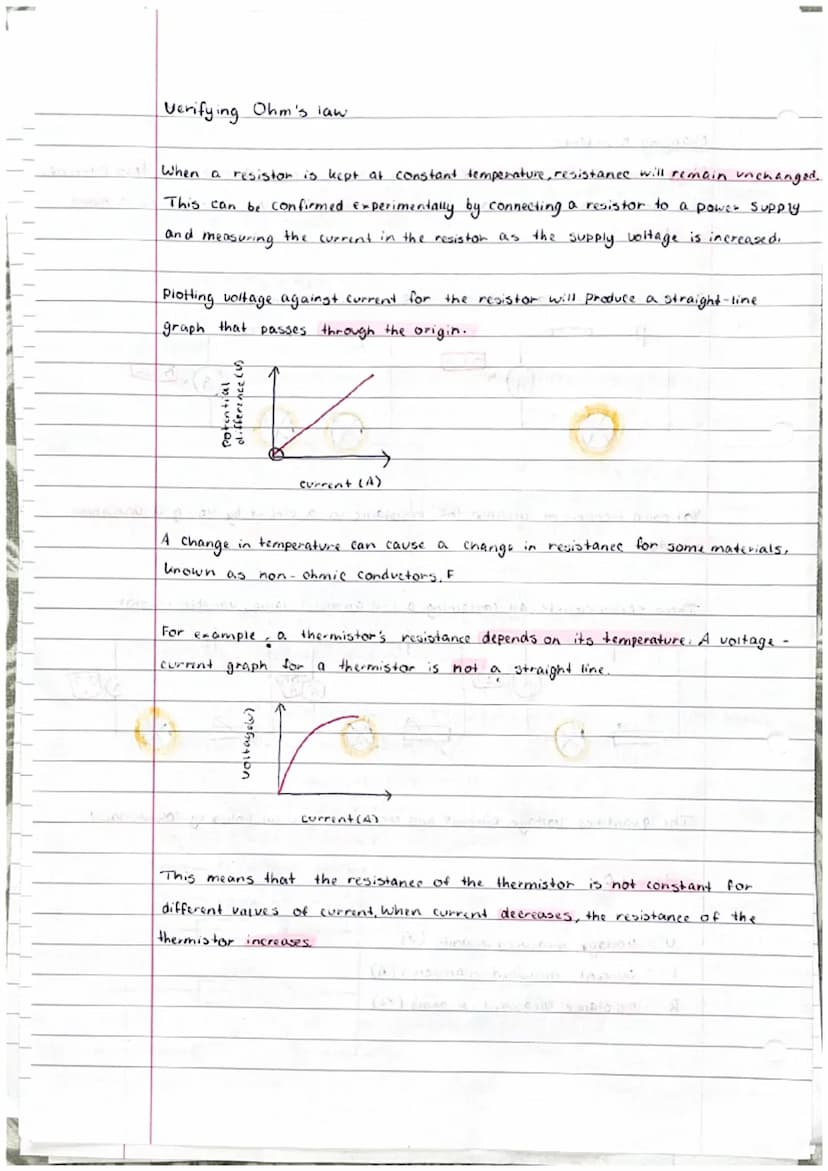 Verifying Ohm's law
When a resistor is kept at constant temperature, resistance will remain unchanged.
This can be confirmed experimentally by connecting a resistor to a power supply
and measuring the current in the resistor as the supply voltage is increased.
Plotting voltage against current for the resistor will produce a straight-line
graph that passes through the origin.
Potential
difference (V)
current (A)
A change in temperature can cause a change in resistance for some materials,
known as non-ohmic conductors. F
For example, a thermistor's resistance depends on its temperature. A voltage-
current graph for a thermistor is not a straight line.
Voltage(V)
current(A)
This means that the resistance of the thermistor is not constant for
different values of current. When current decreases, the resistance of the
thermistor increases